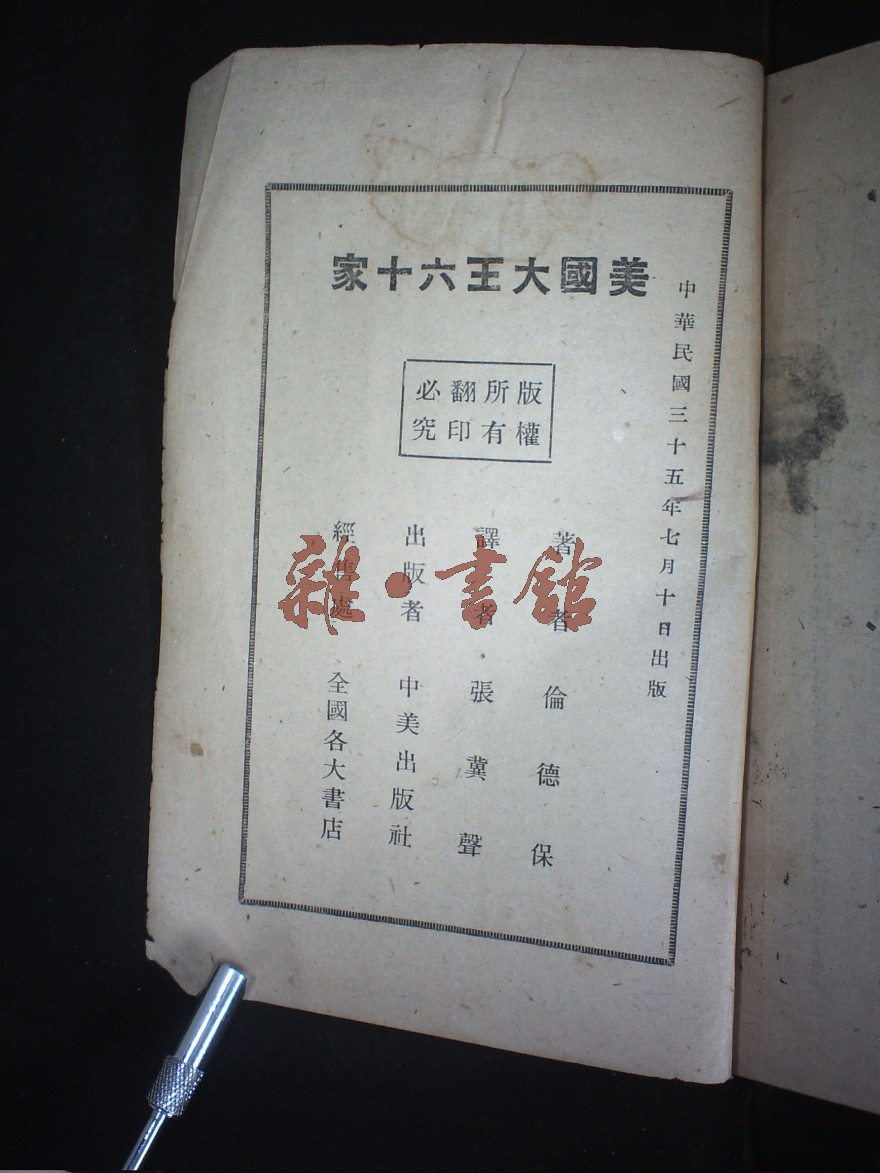 中華民國三十五年七月十日出版
美國大王六十家
版權
所有
翻印
必究
著者 倫德保
譯者 張冀聲
出版者 中美出版社
經售處 全國各大書店
雜·書館